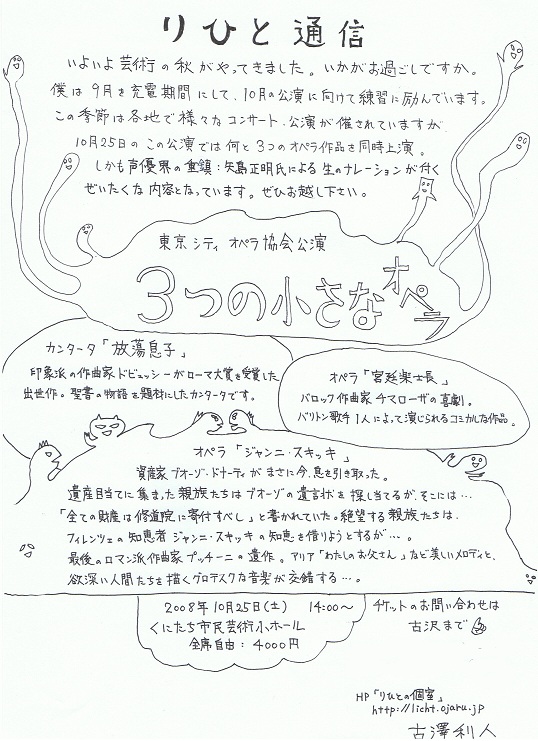 りひと通信
いよいよ芸術の秋がやってきました。いかがお過ごしですか。
僕は9月を充電期間にして、10月の公演に向けて練習に励んでいます。
この季節は各地で様々なコンサート、公演が催されていますが
10月25日のこの公演では何と3つのオペラ作品を同時上演。
しかも声優界の重鎮：矢島正明氏による生のナレーションが付く
ぜいたくな内容となっています。ぜひお越し下さい。
東京シティオペラ協会公演
3つの小さなオペラ
カンタータ「放蕩息子」
印象派の作曲家ドビュッシーがローマ大賞を受賞した
出世作。聖書の物語を題材にしたカンタータです。
オペラ「宮廷楽士長」
バロック作曲家チマローザの喜劇。
バリトン歌手1人によって演じられるコミカルな作品。
オペラ「ジャンニ・スキッキ」
資産家ブオーゾ・ドナーティがまさに今、息を引き取った。
遺産目当てに集まった親族たちはブオーゾの遺言状を探し当てるが、そこには…
「全ての財産は修道院に寄付すべし」と書かれていた。絶望する親族たちは、
フィレンツェの知恵者ジャンニ・スキッキの知恵を借りようとするが…。
最後のロマン派作曲家プッチーニの遺作。アリア「わたしのお父さん」など美しいメロディと、
欲深い人間たちを描くグロテスクな音楽が交錯する…。
2008年10月25日(土) 14:00～
くにたち市民芸術小ホール
全席自由：4000円
チケットのお問い合わせは
古沢まで
HP「りひとの個室」
http://licht.ojaru.jp
古澤利人